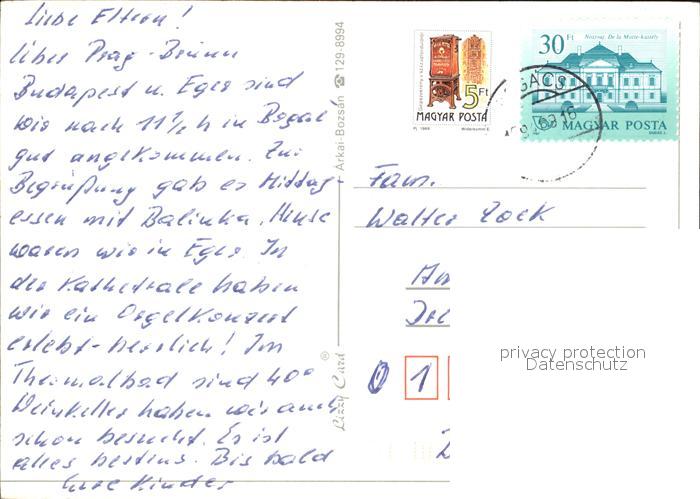 Liebe Eltern!
Über Prag-Brünn
Budapest u. Eger sind
wir nach 11½ h in Bogács
gut angekommen. Zur
Begrüßung gab es Mittag-
essen mit Balinka. Heute
waren wir in Eger. In
der Kathedrale haben
wir ein Orgelkonzert
erlebt - herrlich! Im
Thermalbad sind 40°
Weinkeller haben wir auch
schon besucht. Es ist
alles bestens. Bis bald
Eure Kinder
Árkai-Bozsán ☎ 129-8994
Lizzy Card ®
5 Ft
MAGYAR POSTA
30 Ft
Nógrág, De la Motte-kastély
MAGYAR POSTA
Fam.
Walter
0 1
privacy protection
Datenschutz